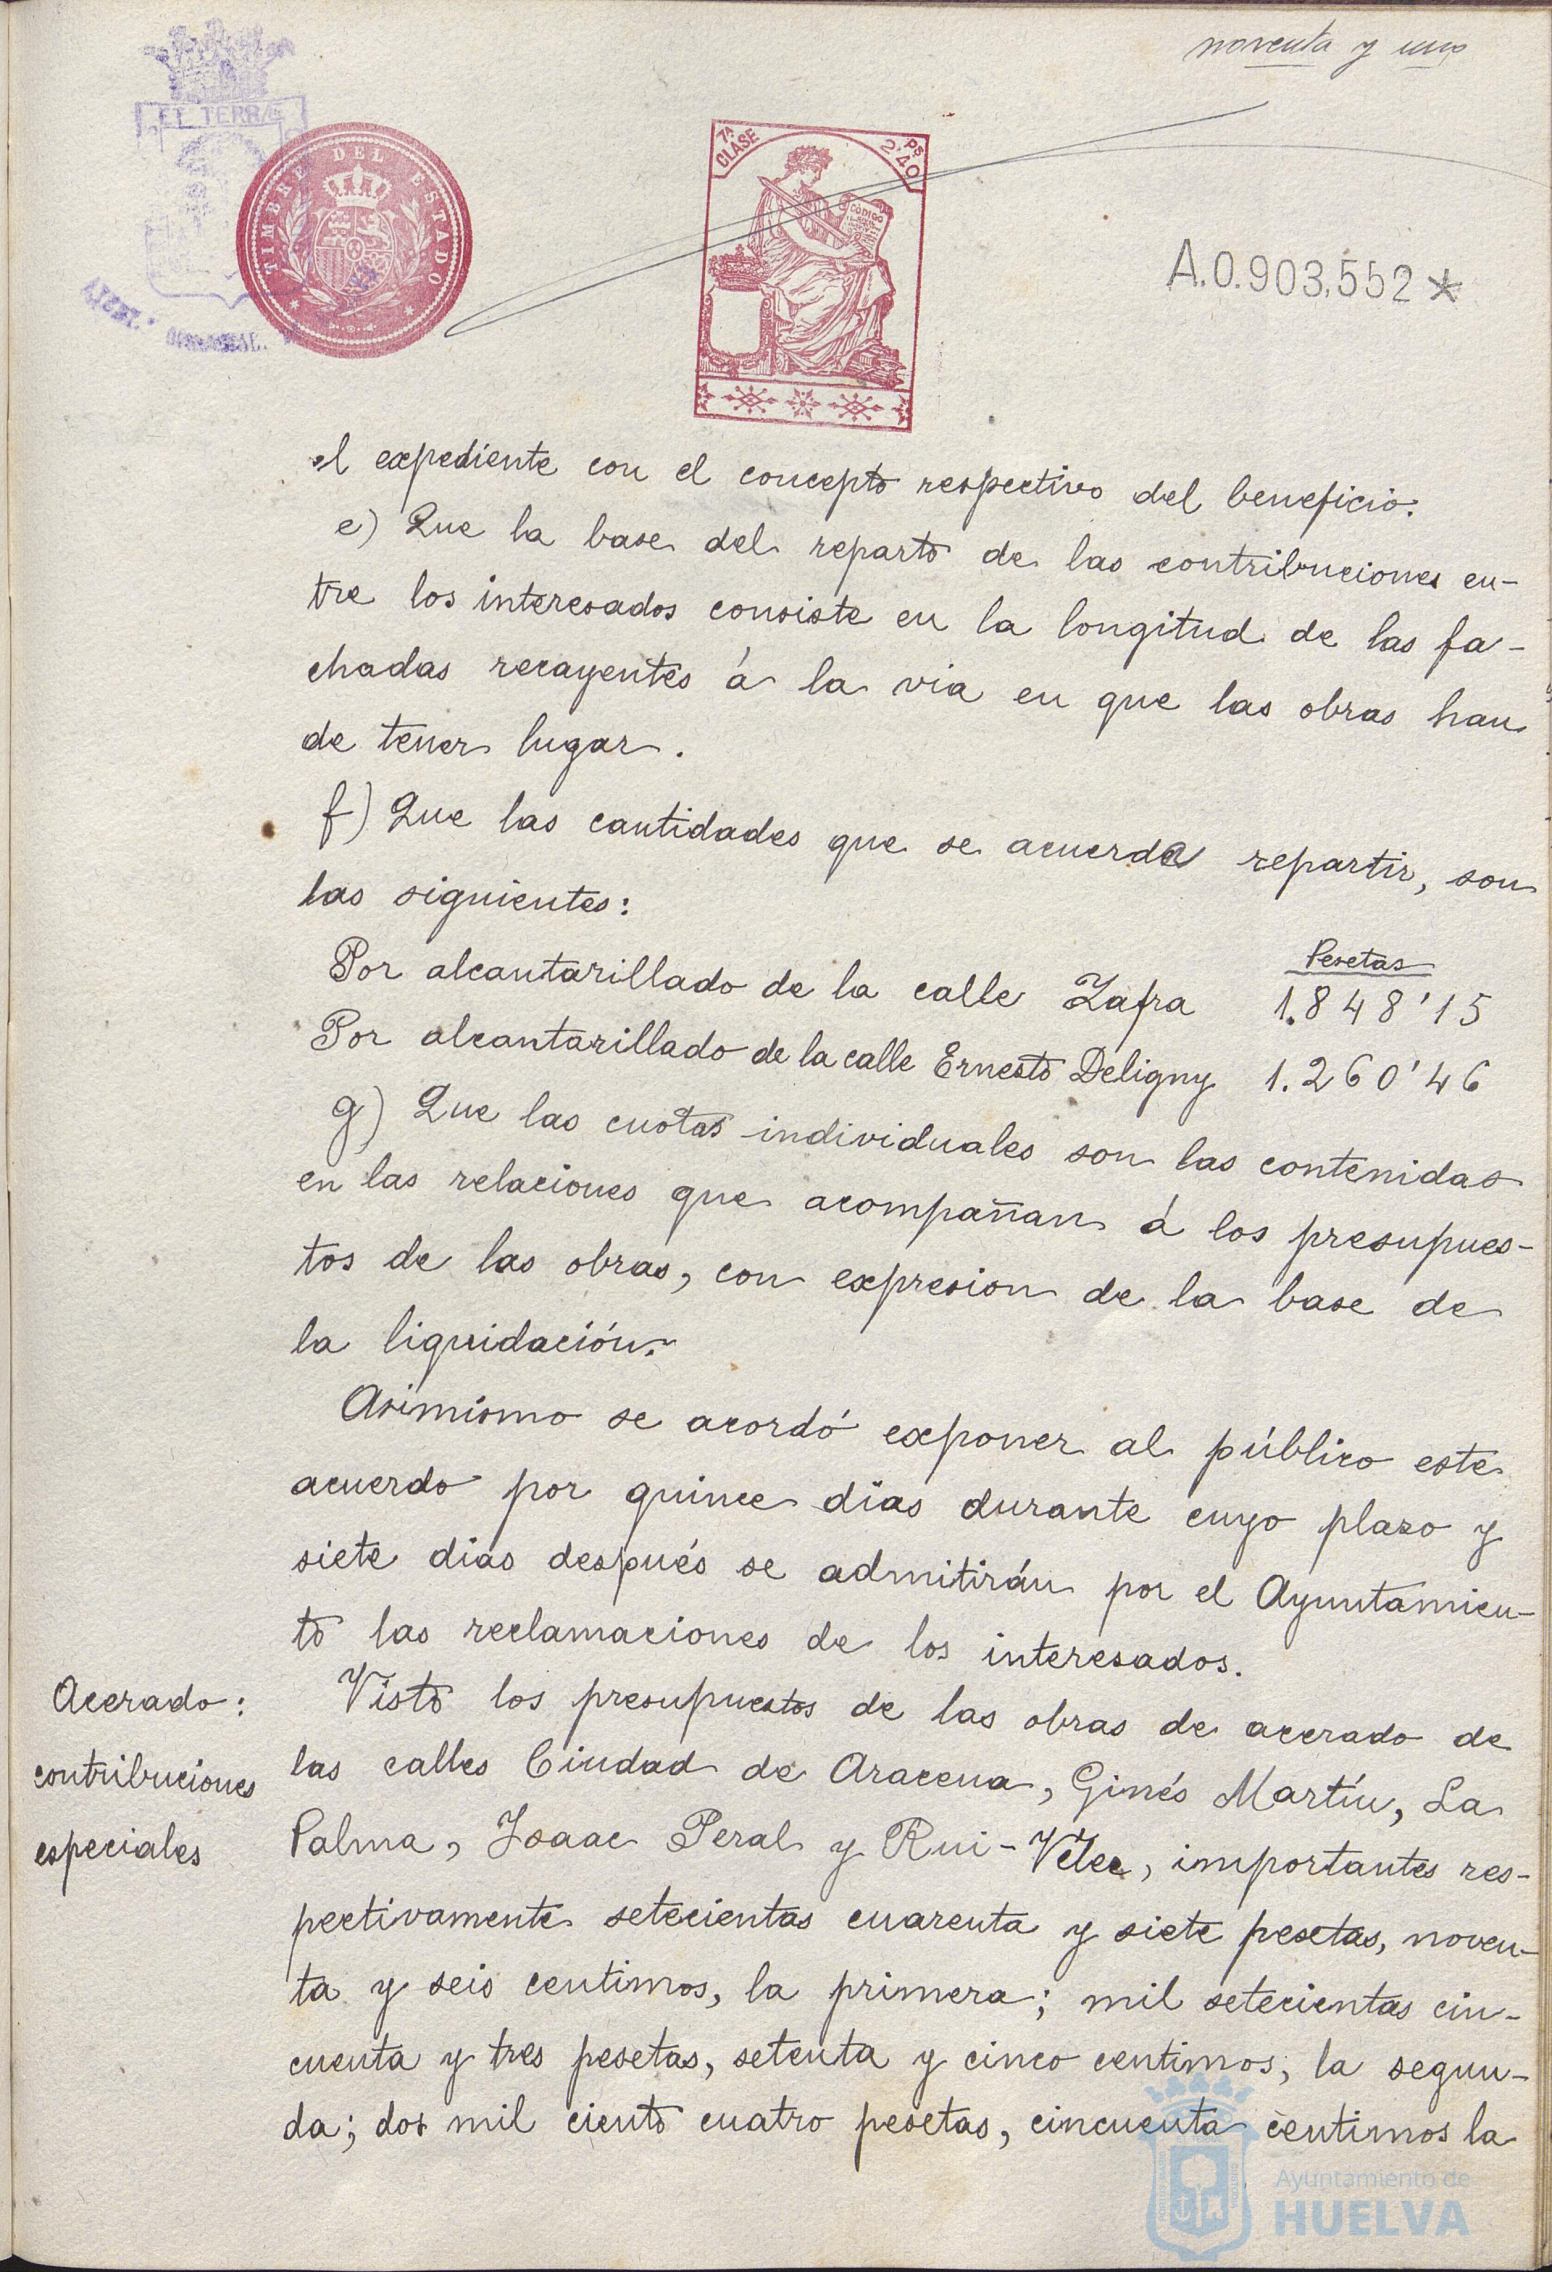 noventa y uno
EL TERRÆ
TIMBRE DEL ESTADO
7ª CLASE
Ps 2'40
CÓDIGO
A.0.903,552*
el expediente con el concepto respectivo del beneficio.
e) Que la base del reparto de las contribuciones en-
tre los interesados consiste en la longitud de las fa-
chadas recayentes á la via en que las obras han
de tener lugar.
f) Que las cantidades que se acuerda repartir, son
las siguientes:
Pesetas
Por alcantarillado de la calle Zafra 1.848'15
Por alcantarillado de la calle Ernesto Deligny 1.260'46
g) Que las cuotas individuales son las contenidas
en las relaciones que acompañan á los presupues-
tos de las obras, con expresion de la base de
la liquidación.
Asimismo se acordó exponer al público este
acuerdo por quince dias durante cuyo plazo y
siete dias después se admitirán por el Ayuntamien-
to las reclamaciones de los interesados.
Acerado:
contribuciones
especiales
Visto los presupuestos de las obras de acerado de
las calles Ciudad de Aracena, Ginés Martín, La
Palma, Isaac Peral y Rui-Vélez, importantes res-
pectivamente setecientas cuarenta y siete pesetas, noven-
ta y seis centimos, la primera; mil setecientas cin-
cuenta y tres pesetas, setenta y cinco centimos, la segun-
da; dos mil ciento cuatro pesetas, cincuenta centimos la
Ayuntamiento de
HUELVA